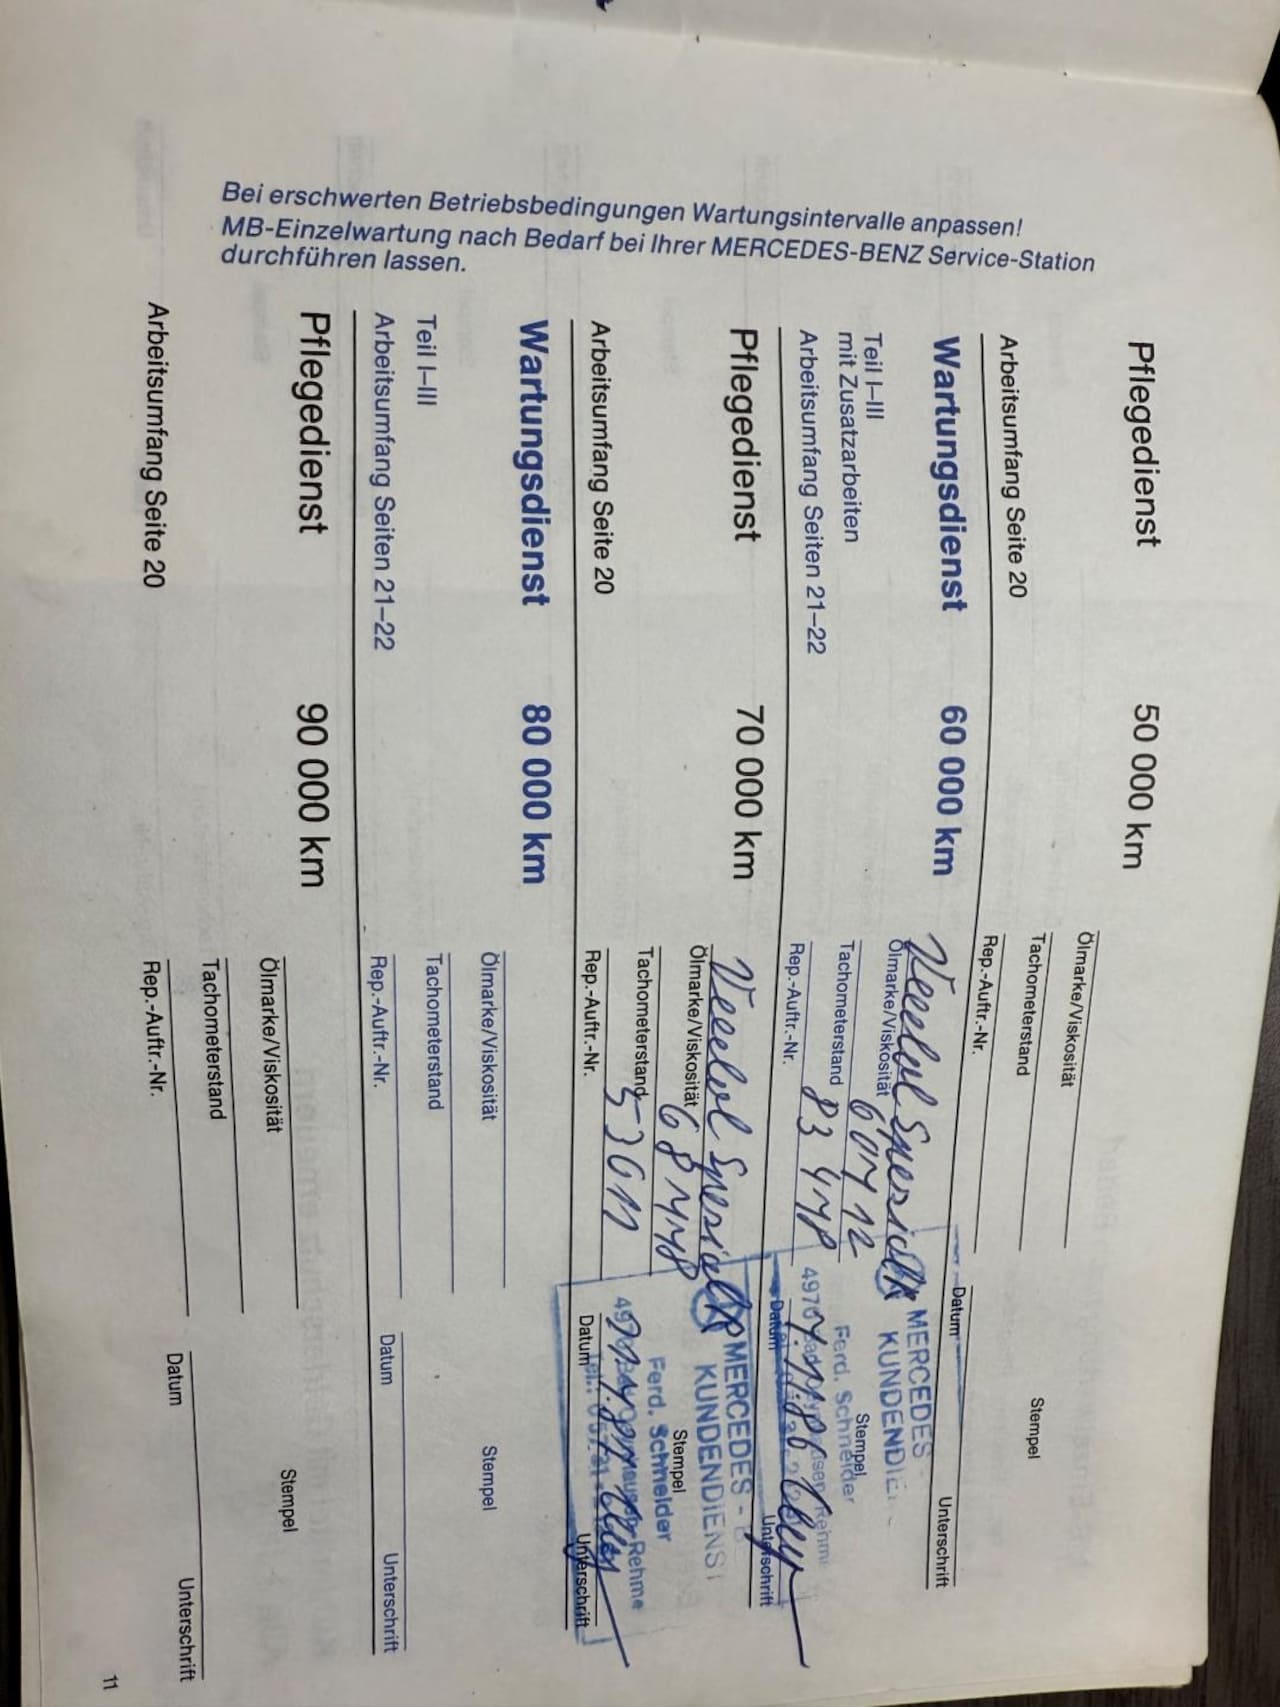 Bei erschwerten Betriebsbedingungen Wartungsintervalle anpassen!
MB-Einzelwartung nach Bedarf bei Ihrer MERCEDES-BENZ Service-Station
durchführen lassen.
Pflegedienst 50 000 km
Ölmarke/Viskosität
Tachometerstand
Stempel
Arbeitsumfang Seite 20
Rep.-Auftr.-Nr.
Datum
Unterschrift
Wartungsdienst 60 000 km
MERCEDES
KUNDENDIE
Ölmarke/Viskosität
Teil I–III
mit Zusatzarbeiten
Tachometerstand
Stempel
Ferd. Schneider
Arbeitsumfang Seiten 21–22
Rep.-Auftr.-Nr.
Datum
Unterschrift
Pflegedienst 70 000 km
MERCEDES -
KUNDENDIENST
Ölmarke/Viskosität
Tachometerstand
Stempel
Ferd. Schneider
Arbeitsumfang Seite 20
Rep.-Auftr.-Nr.
Datum
Unterschrift
Wartungsdienst 80 000 km
Ölmarke/Viskosität
Stempel
Teil I–III
Tachometerstand
Arbeitsumfang Seiten 21–22
Rep.-Auftr.-Nr.
Datum
Unterschrift
Pflegedienst 90 000 km
Ölmarke/Viskosität
Stempel
Tachometerstand
Arbeitsumfang Seite 20
Rep.-Auftr.-Nr.
Datum
Unterschrift
11